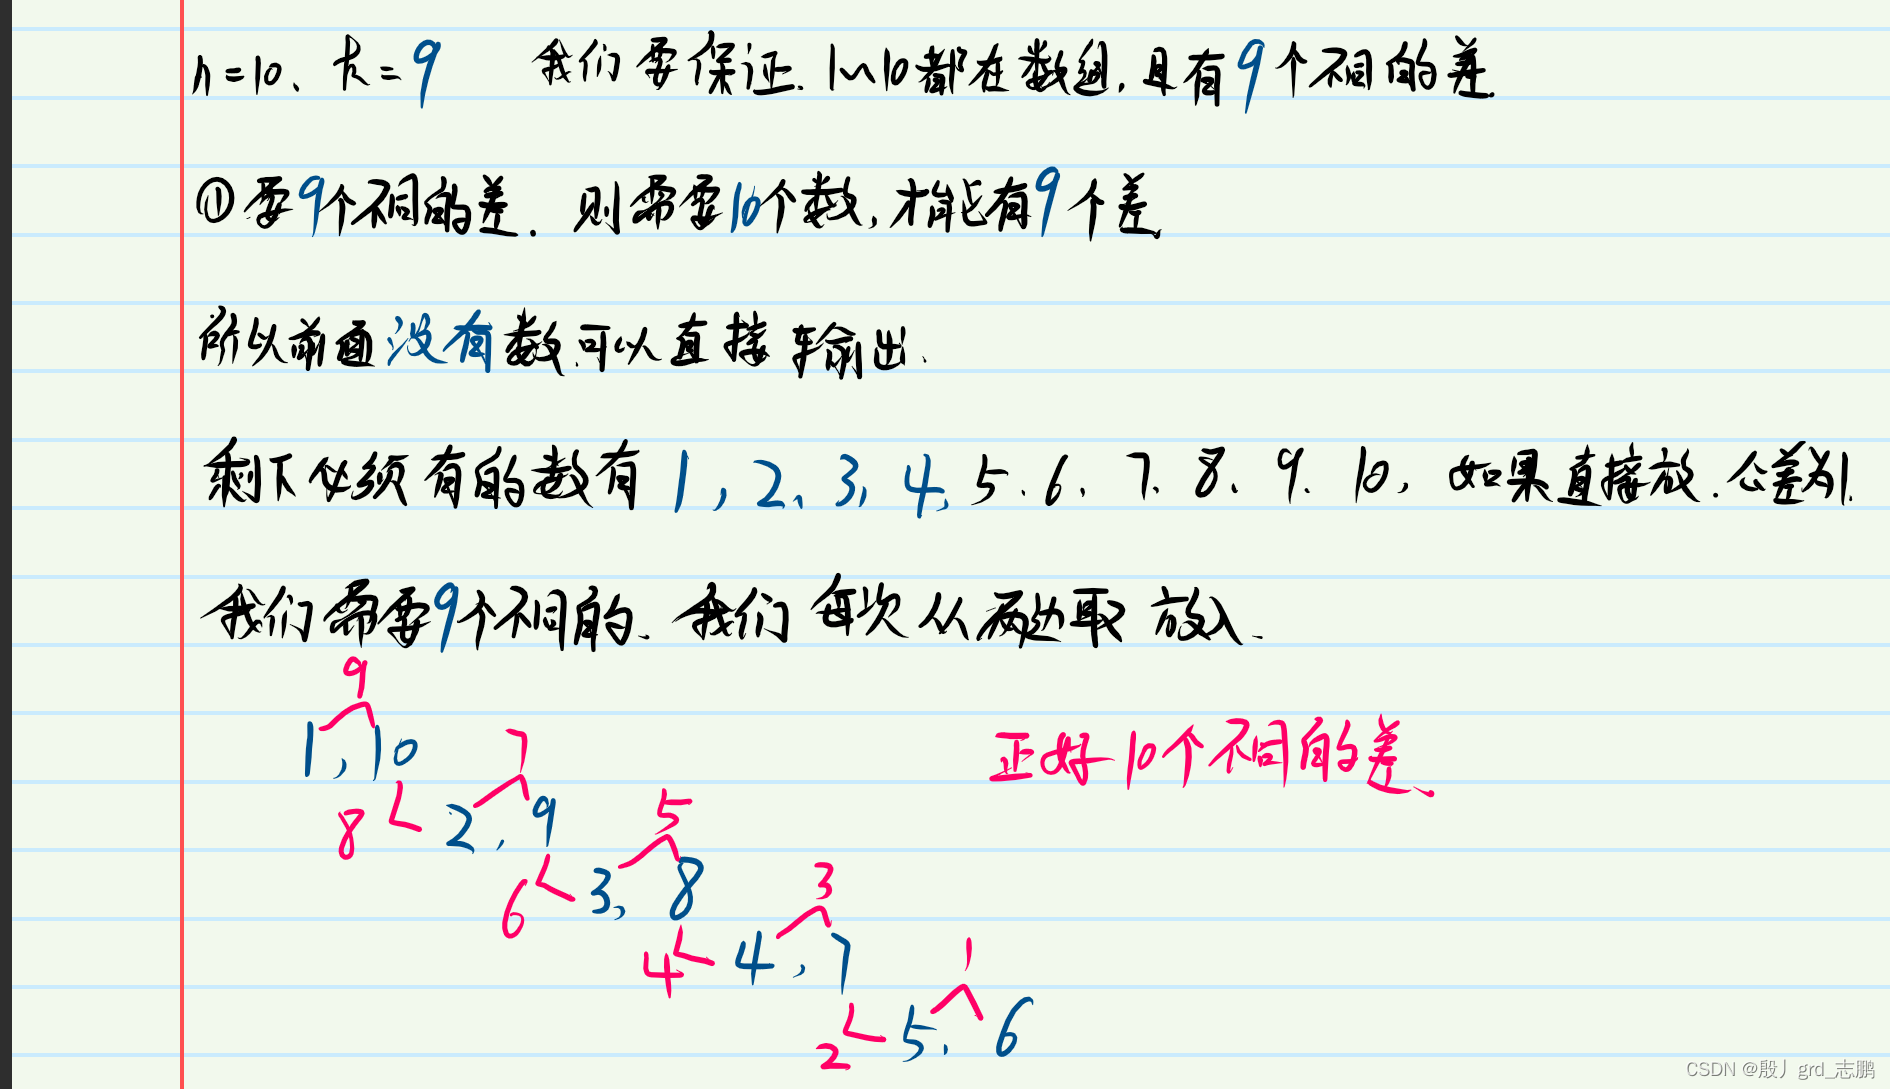 n=10、k=9 我们要保证.1~10都在数组,且有9个不同的差.
①要9个不同的差.则需要10个数,才能有9个差,
所以前面没有数可以直接输出.
剩下必须有的数有1,2、3,4,5、6、7、8、9、10,如果直接放.公差为1.
我们需要9个不同的、我们每次从两边取放入.
9
1,10
7
正好10个不同的差、
8
2,9
5
6
3,8
3
4
4,7
1
2
5、6
CSDN @殷丿grd_志鹏